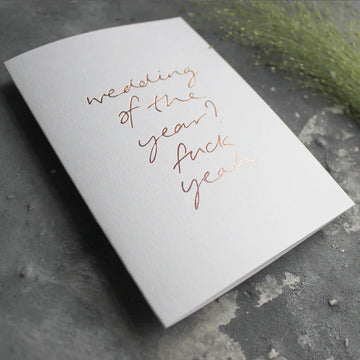 wedding
of the
year?
fuck
yeah